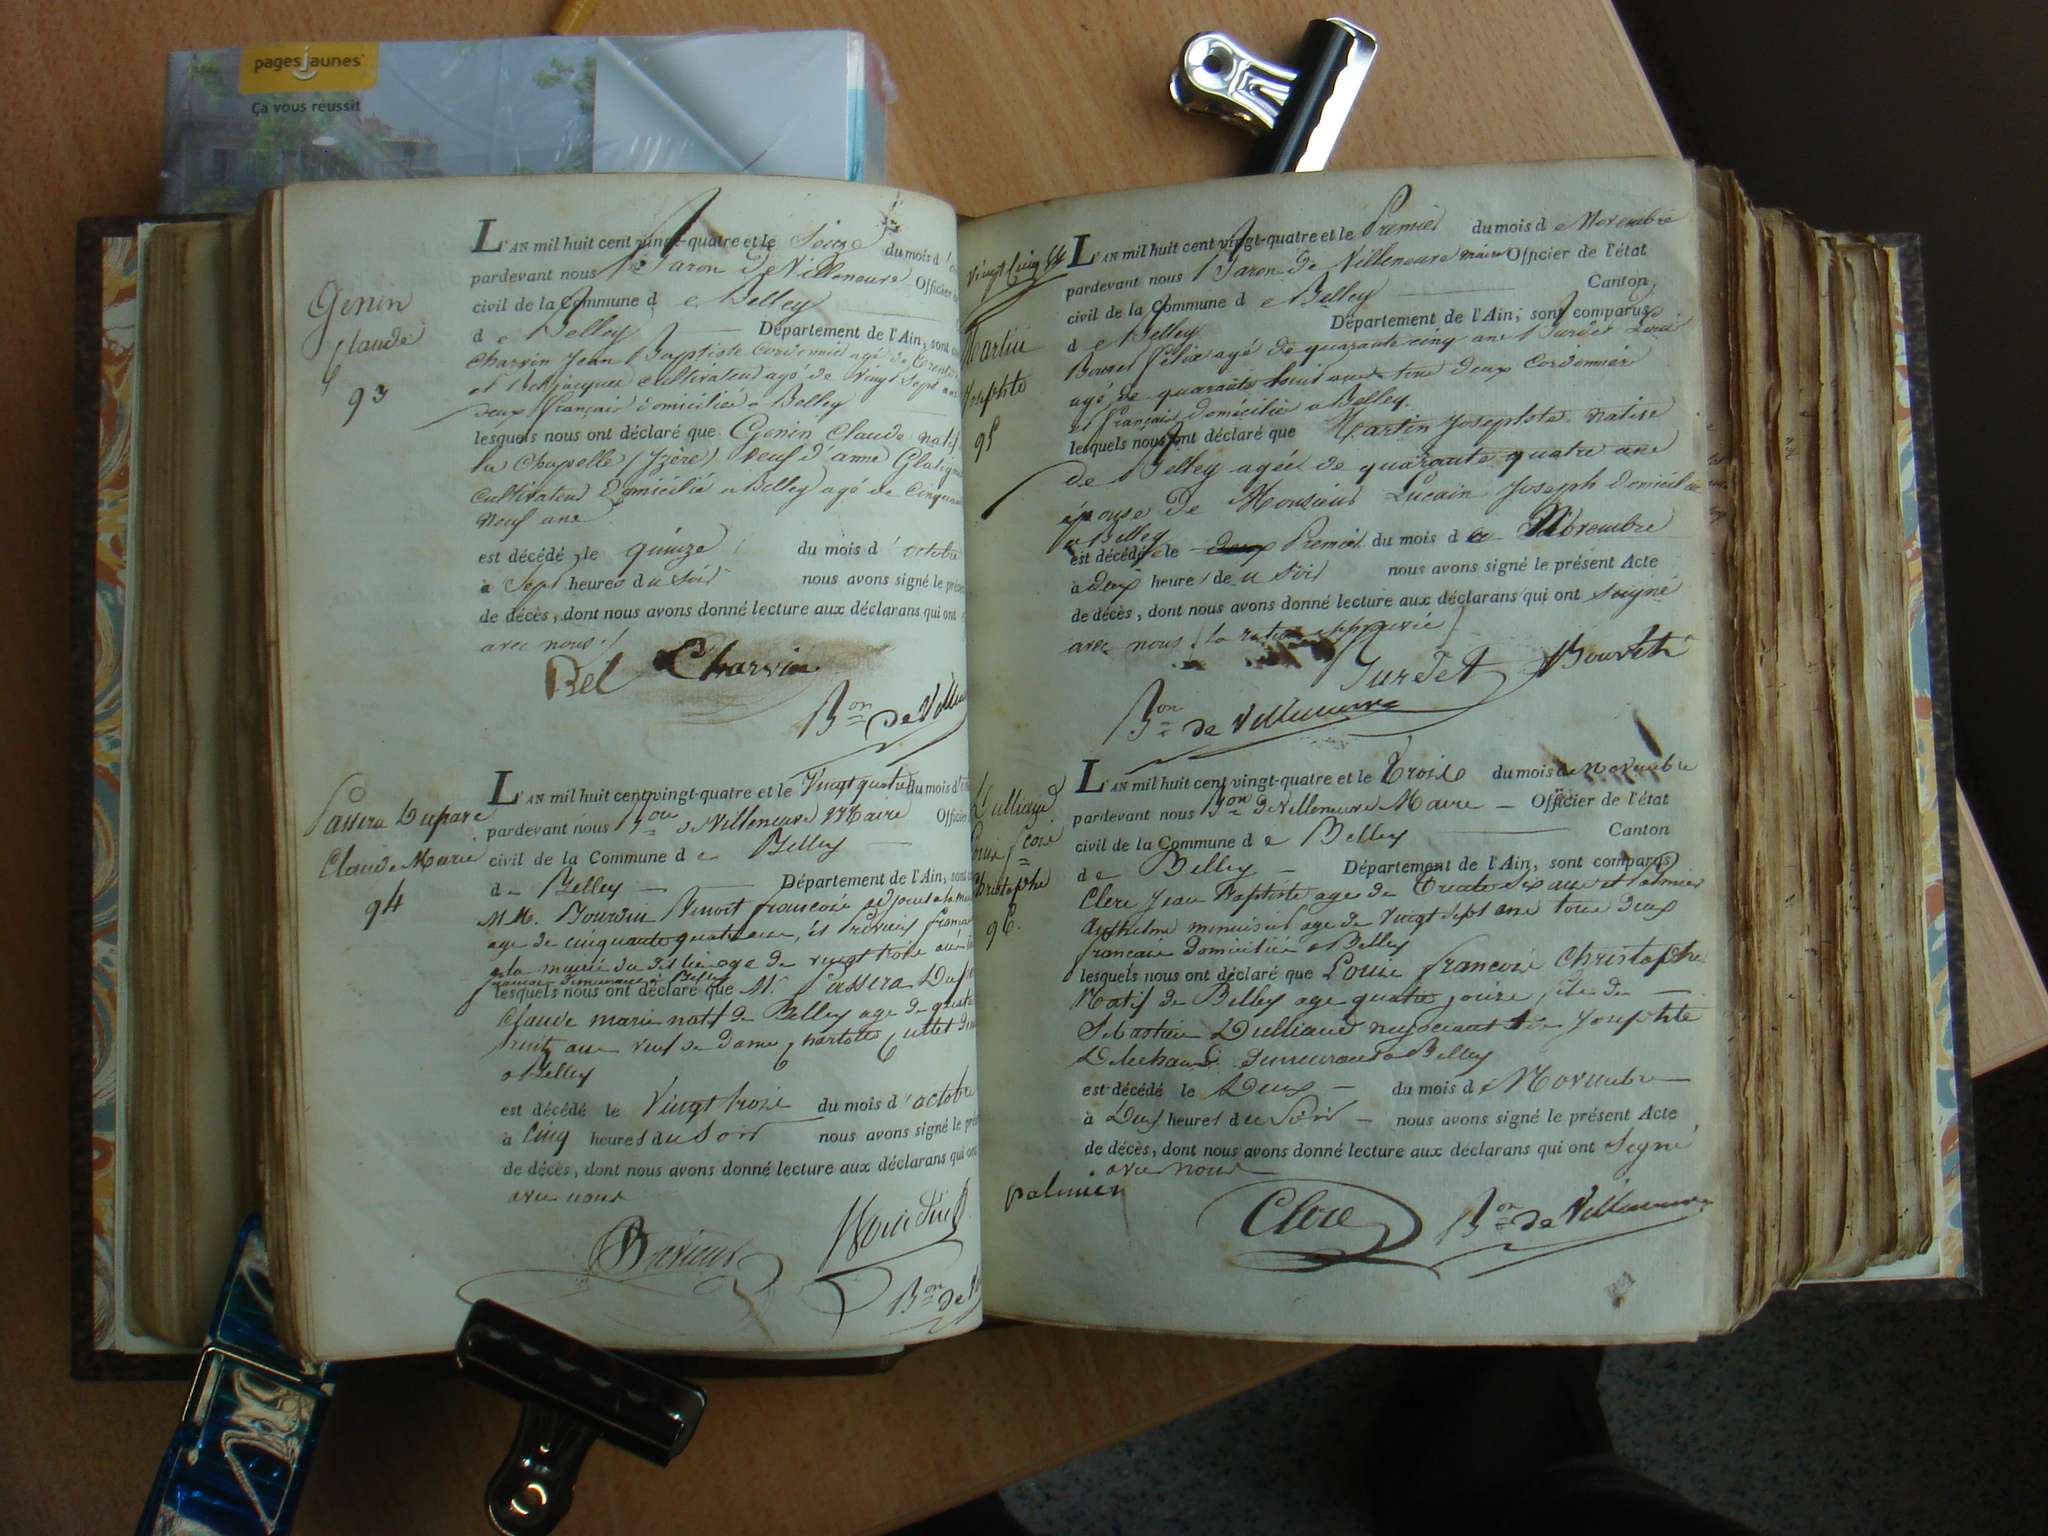 pages jaunes
Ça vous réussit
Genin
Claude
93
L'AN mil huit cent vingt-quatre et le Seize du mois d'
pardevant nous Baron de Villeneuve Officier
civil de la Commune de Belley
de Belley Département de l'Ain, sont
Charvin Jean Baptiste Cordonnier agé de trente
et Bel jacques cultivateur agé de vingt sept ans
deux français domiciliés a Belley
lesquels nous ont déclaré que Genin Claude natif
la Chapelle (Izère) veuf d'anne
cultivateur domicilié a Belley agé de Cinquante
neuf ans
est décédé le quinze du mois d'octobre
à Sept heures du Soir nous avons signé le
de décès, dont nous avons donné lecture aux déclarans qui ont
avec nous
Bel Charvin
Bon de
Passera Duparc
Claude Marie
94
L'AN mil huit cent vingt-quatre et le Vingt quatre du mois d'
pardevant nous Bon de Villeneuve Maire Officier
civil de la Commune de Belley
de Belley Département de l'Ain, sont
MM. Bourdin Benoit françois
age de cinquante quatre ans, et Prévieux
a la mairie du dit lieu age de vingt trois ans
lesquels nous ont déclaré que Mr Passera
Claude marie natif de Belley age de quatre
vingt ans veuf de dame Charlotte
a Belley
est décédé le Vingt trois du mois d'octobre
à Cinq heures du Soir nous avons signé le
de décès, dont nous avons donné lecture aux déclarans qui
avec nous
Prévieux
Bon de
Vingt Cinq
Martin
Josephte
95
L'AN mil huit cent vingt-quatre et le Premier du mois de Novembre
pardevant nous Baron de Villeneuve maire Officier de l'état
civil de la Commune de Belley Canton
de Belley Département de l'Ain, sont comparus
Bouvet Félix agé de quarante cinq ans Jurdet Louis
agé de quarante huit ans tous deux Cordonnier
et français domiciliés a Belley.
lesquels nous ont déclaré que Martin Josephte native
de Belley agée de quarante quatre ans
épouse de Monsieur Lucain Joseph domicilié
a Belley
est décédé le deux Premier du mois de Novembre
à deux heures de u soir nous avons signé le présent Acte
de décès, dont nous avons donné lecture aux déclarans qui ont soigné
avec nous la rature approuvée
Jurdet Bouvet
Bon de Villeneuve
Dulliand
Louis fcois
Christophe
96.
L'AN mil huit cent vingt-quatre et le Trois du mois de novembre
pardevant nous Bon de Villeneuve Maire Officier de l'état
civil de la Commune de Belley Canton
de Belley Département de l'Ain, sont comparus
Clerc Jean Baptiste age de Trente Six ans et Palmier
Anthelme menuisier age de vingt sept ans tous deux
francais domiciliés a Belley
lesquels nous ont déclaré que Louis francois Christophe
Natif de Belley age quatre jours fils de
Sébastien Dulliand negociant et de Josephte
demeurant a Belley
est décédé le deux du mois de Novembre
à Deux heures du Soir nous avons signé le présent Acte
de décès, dont nous avons donné lecture aux déclarans qui ont Segné
avec nous
palmier
Clerc Bon de Villeneuve